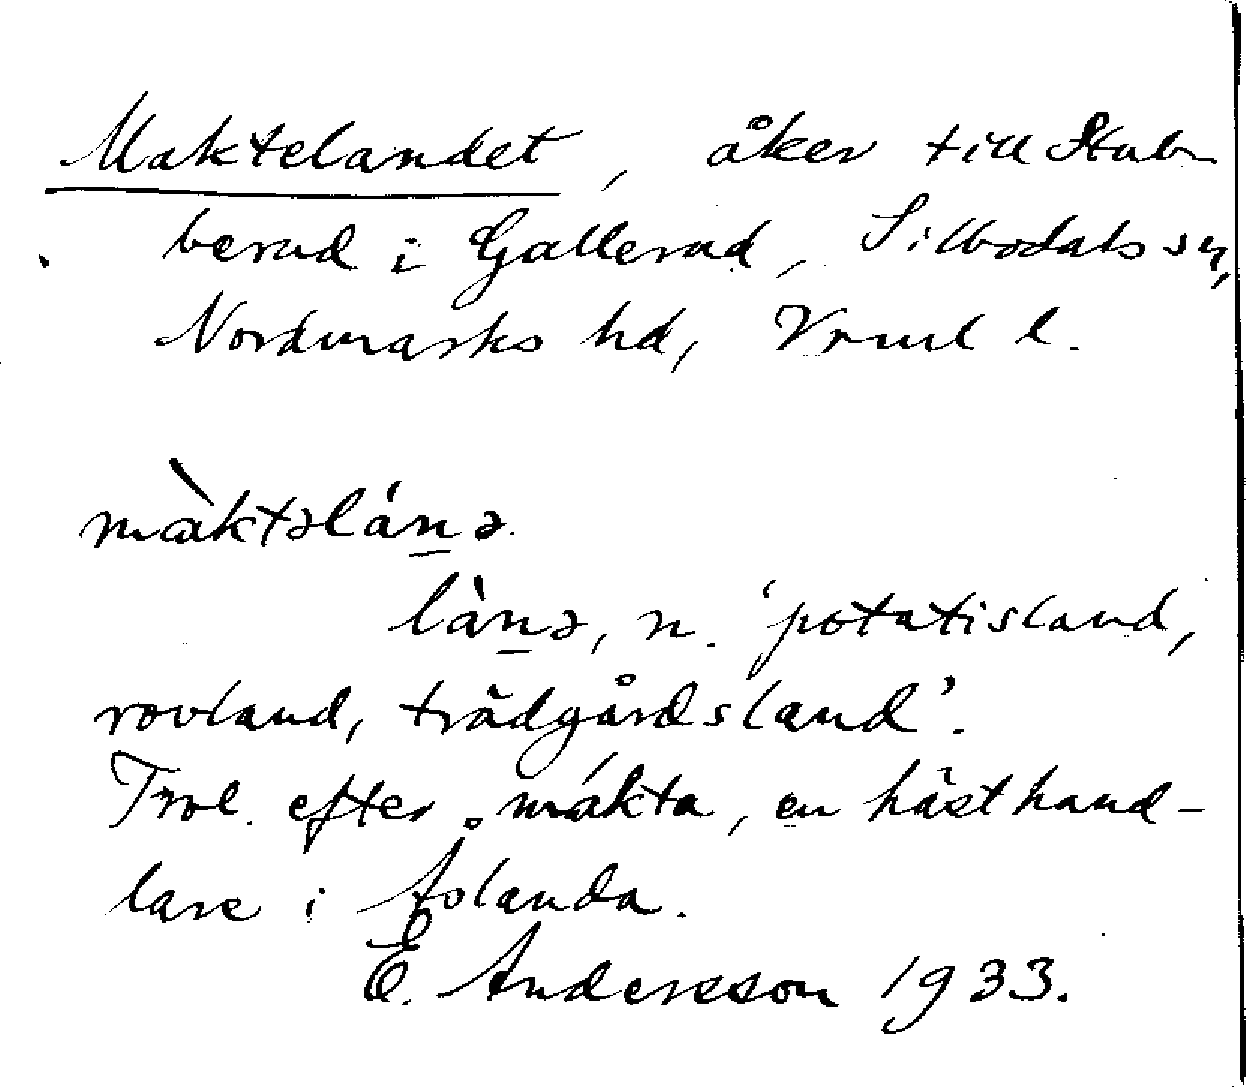 Maktelandet, åker till Stub-
berud i Gallerud, Sillbodals sn,
Nordmarks hd, Vrml l.
màktəlánə.
lànə, n. 'potatisland,
rovland, trädgårdsland'.
Trol. efter mákta, en hästhand-
lare i Åslanda.
E. Andersson 1933.